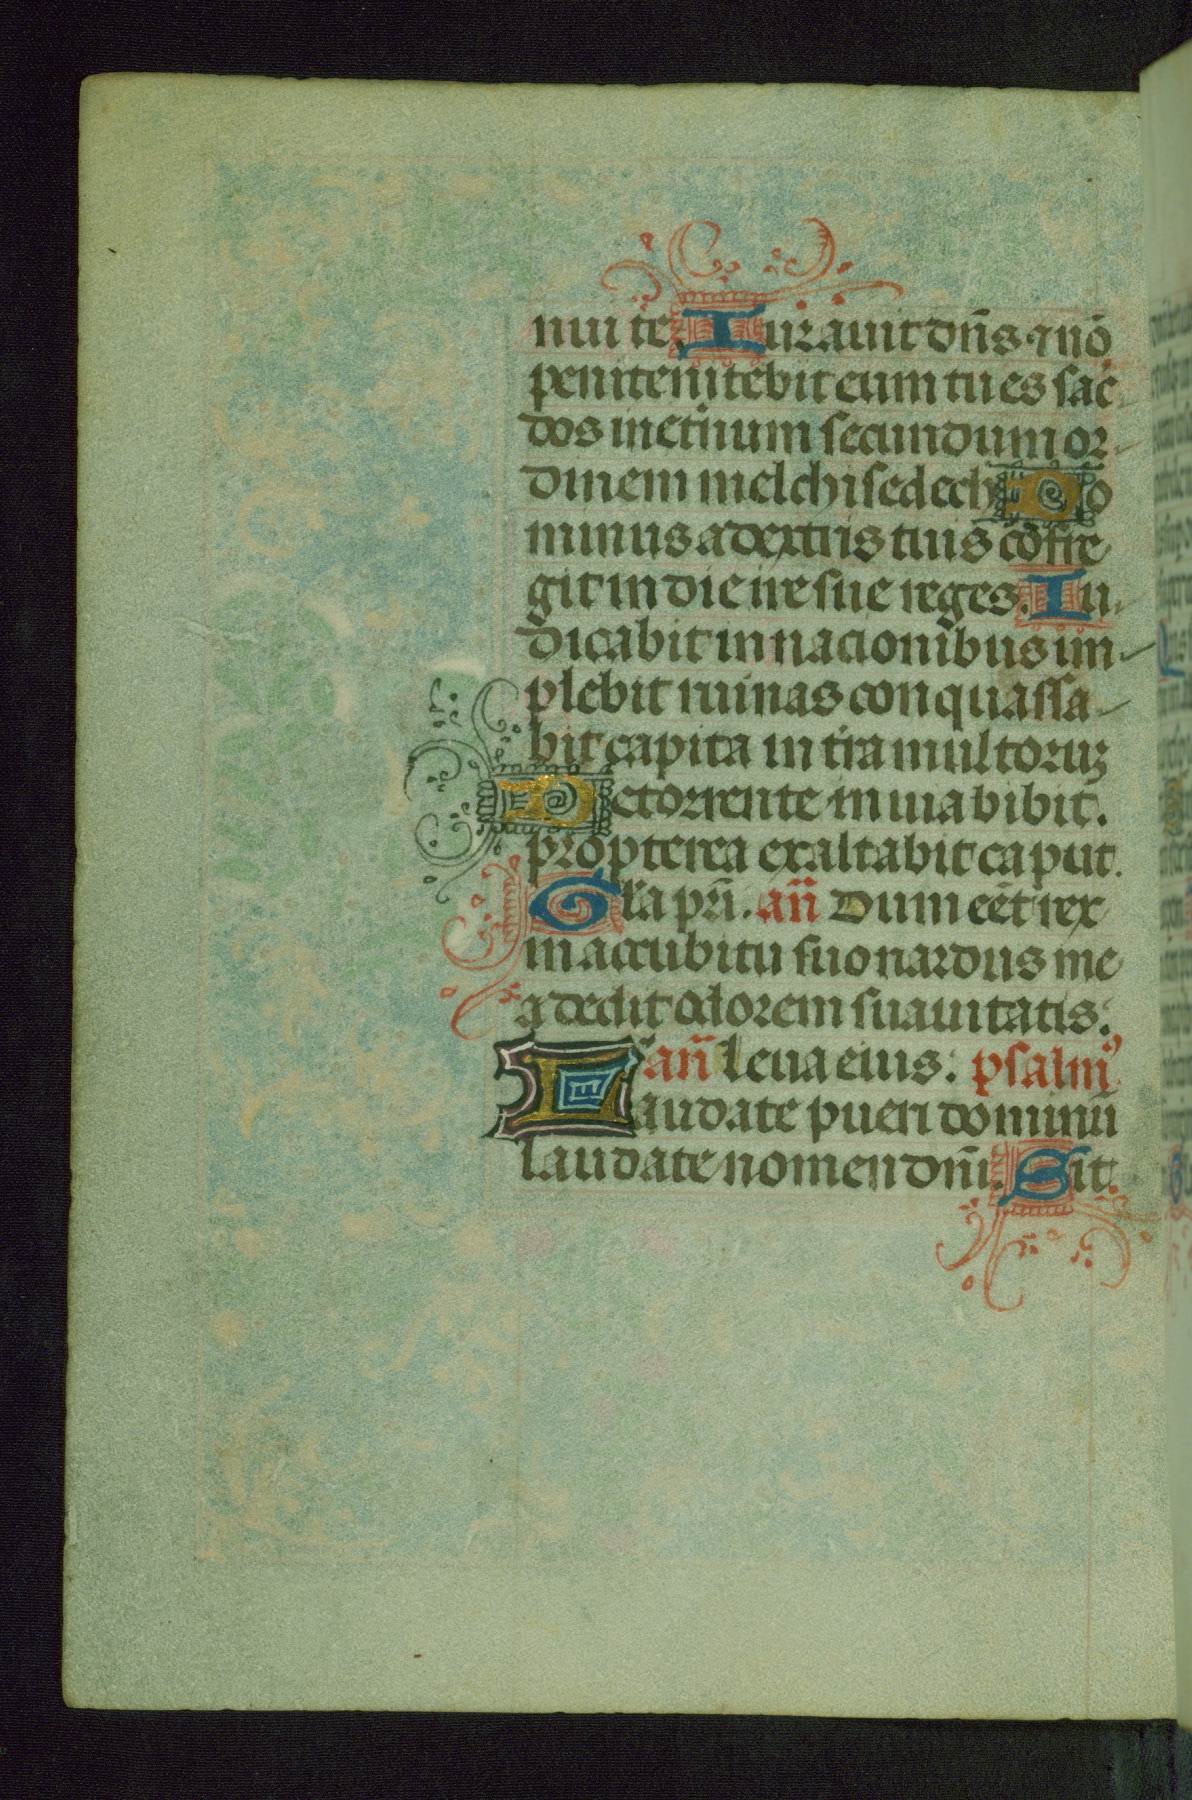 nui te. Iurauit dñs ⁊ nō
peniteni tebit eum tu es sac̄
dos in et̄num secundum or
dinem melchisedech Do
minus a dextris tuis cōfre
git in die ire sue reges. Iu
dicabit in nacionibus im
plebit ruinas conquassa
bit capita in t̄ra multoruꝫ
De torrente in uia bibit.
propterea exaltabit caput.
Gl̄a pr̄i. an̄ Dum eēt rex
in accubitu suo nardus me
a dedit odorem suauitatis.
an̄ Leua eius: psalm᷒
Laudate pueri dominū
laudate nomen dn̄i. Sit